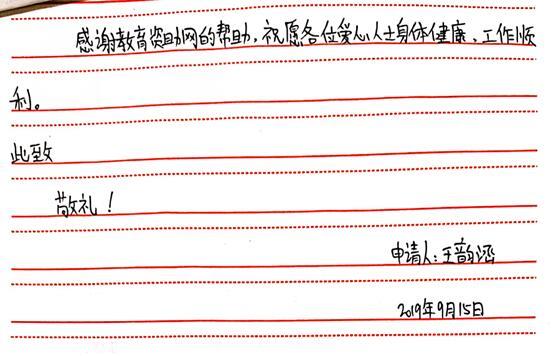 感谢教育资助网的帮助，祝愿各位爱心人士身体健康、工作顺
利。
此致
敬礼！
申请人：王韵涵
2019年9月15日